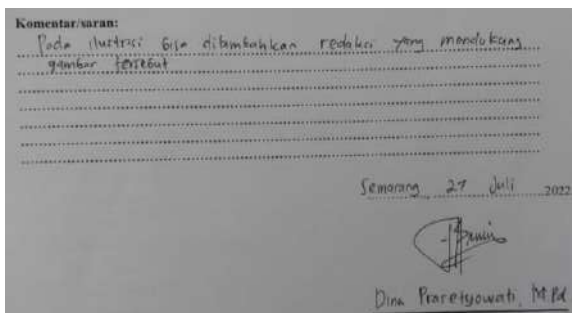 Komentar/saran:
Pada ilustrasi bisa ditambahkan redaksi yang mendukung
gambar tersebut
Semarang, 27 Juli 2022
Dina Prasetyowati, M.Pd